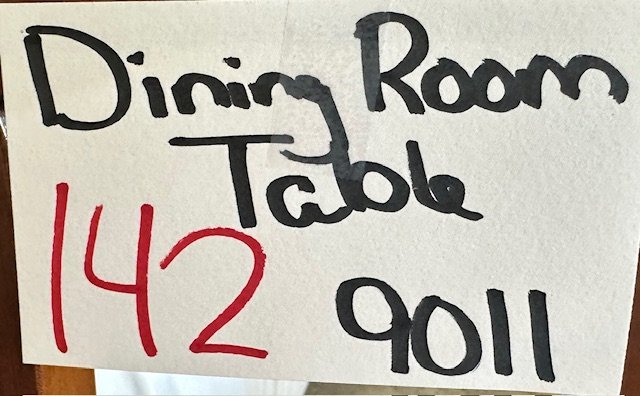 Dining Room
Table
142 9011